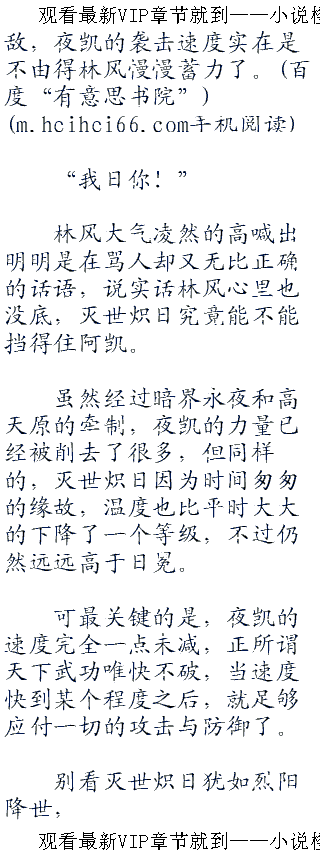 观看最新VIP章节就到——小说检
敌，夜凯的袭击速度实在是
不由得林风慢慢蓄力了。(百
度“有意思书院”)
(m.hcihci66.com手机阅读)
“我日你！”
林风大气凌然的高喊出
明明是在骂人却又无比正确
的话语，说实话林风心里也
没底，灭世炽日究竟能不能
挡得住阿凯。
虽然经过暗界永夜和高
天原的牵制，夜凯的力量已
经被削去了很多，但同样
的，灭世炽日因为时间匆匆
的缘故，温度也比平时大大
的下降了一个等级，不过仍
然远远高于日冕。
可最关键的是，夜凯的
速度完全一点未减，正所谓
天下武功唯快不破，当速度
快到某个程度之后，就足够
应付一切的攻击与防御了。
别看灭世炽日犹如烈阳
降世，
观看最新VIP章节就到——小说检